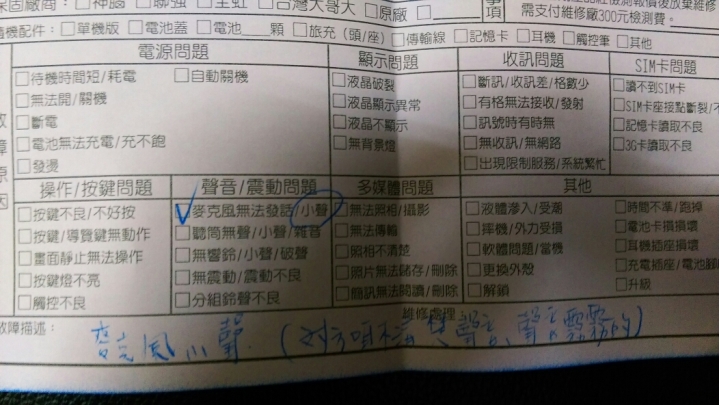 保固廠商：□神腦 □聯強 □全虹 □台灣大哥大 □原廠 □
需支付維修廠300元檢測費。
隨機配件：□單機版 □電池蓋 □電池 顆 □旅充（頭/座）□傳輸線 □記憶卡 □耳機 □觸控筆 □其他
電源問題 顯示問題 收訊問題 SIM卡問題
□待機時間短/耗電 □自動關機 □液晶破裂 □斷訊/收訊差/格數少 □讀不到SIM卡
□無法開/關機 □液晶顯示異常 □有格無法接收/發射 □SIM卡座接點斷裂/
□斷電 □液晶不顯示 □訊號時有時無 □記憶卡讀取不良
□電池無法充電/充不飽 □無背景燈 □無收訊/無網路 □3G卡讀取不良
□發燙 □出現限制服務/系統繁忙
操作/按鍵問題 聲音/震動問題 多媒體問題 其他
□按鍵不良/不好按 ✓麥克風無法發話/小聲 □無法照相/攝影 □液體滲入/受潮 □時間不準/跑掉
□按鍵/導覽鍵無動作 □聽筒無聲/小聲/雜音 □無法傳輸 □摔機/外力受損 □電池卡損壞
□畫面靜止無法操作 □無響鈴/小聲/破聲 □照相不清楚 □軟體問題/當機 □耳機插座損壞
□按鍵燈不亮 □無震動/震動不良 □照片無法儲存/刪除 □更換外殼 □充電插座/電池
□觸控不良 □分組鈴聲不良 □簡訊無法閱讀/刪除 □解鎖 □升級
維修處理
故障描述： 麥克風小聲（對方 聲音 聲音霧霧的）